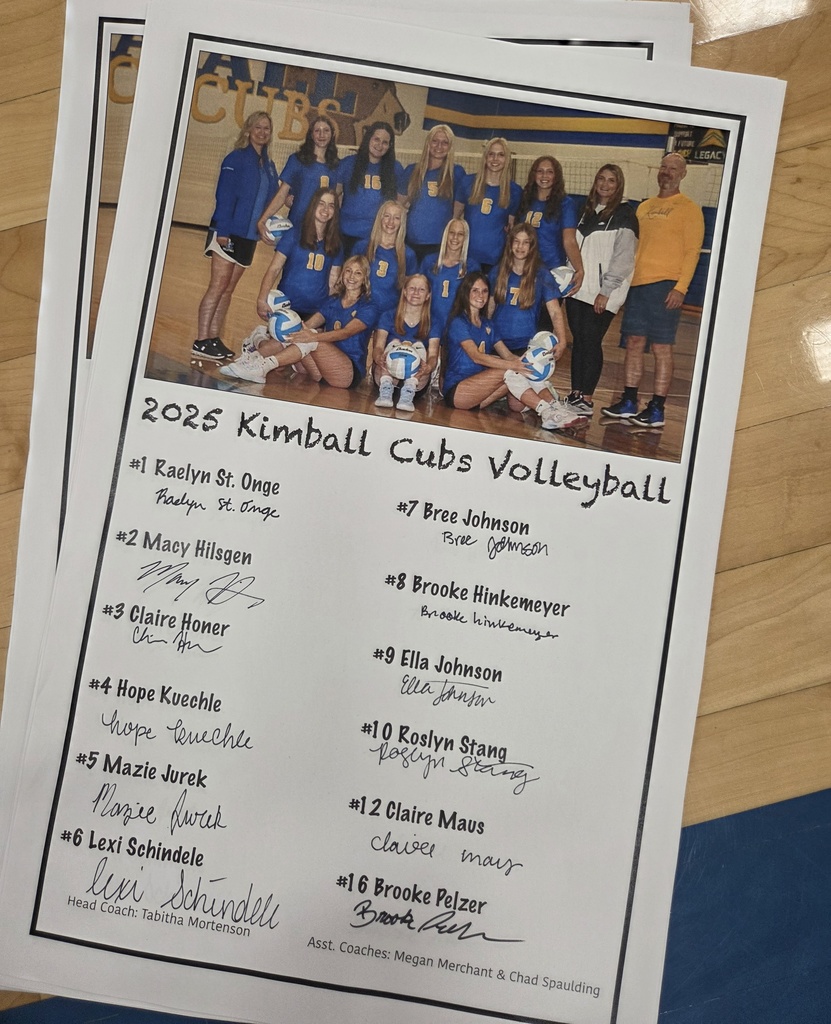 CUBS
SUPPORT
FUTURE
LEGACY
Kimball
9
16
5
6
12
10
3
1
7
2025 Kimball Cubs Volleyball
#1 Raelyn St. Onge
Raelyn St. Onge
#2 Macy Hilsgen
#3 Claire Honer
#4 Hope Kuechle
hope kuechle
#5 Mazie Jurek
Mazie Jurek
#6 Lexi Schindele
lexi Schindele
Head Coach: Tabitha Mortenson
#7 Bree Johnson
Bree Johnson
#8 Brooke Hinkemeyer
Brooke hinkemeyer
#9 Ella Johnson
Ella Johnson
#10 Roslyn Stang
Roslyn Stang
#12 Claire Maus
Claire maus
#16 Brooke Pelzer
Brooke
Asst. Coaches: Megan Merchant & Chad Spaulding